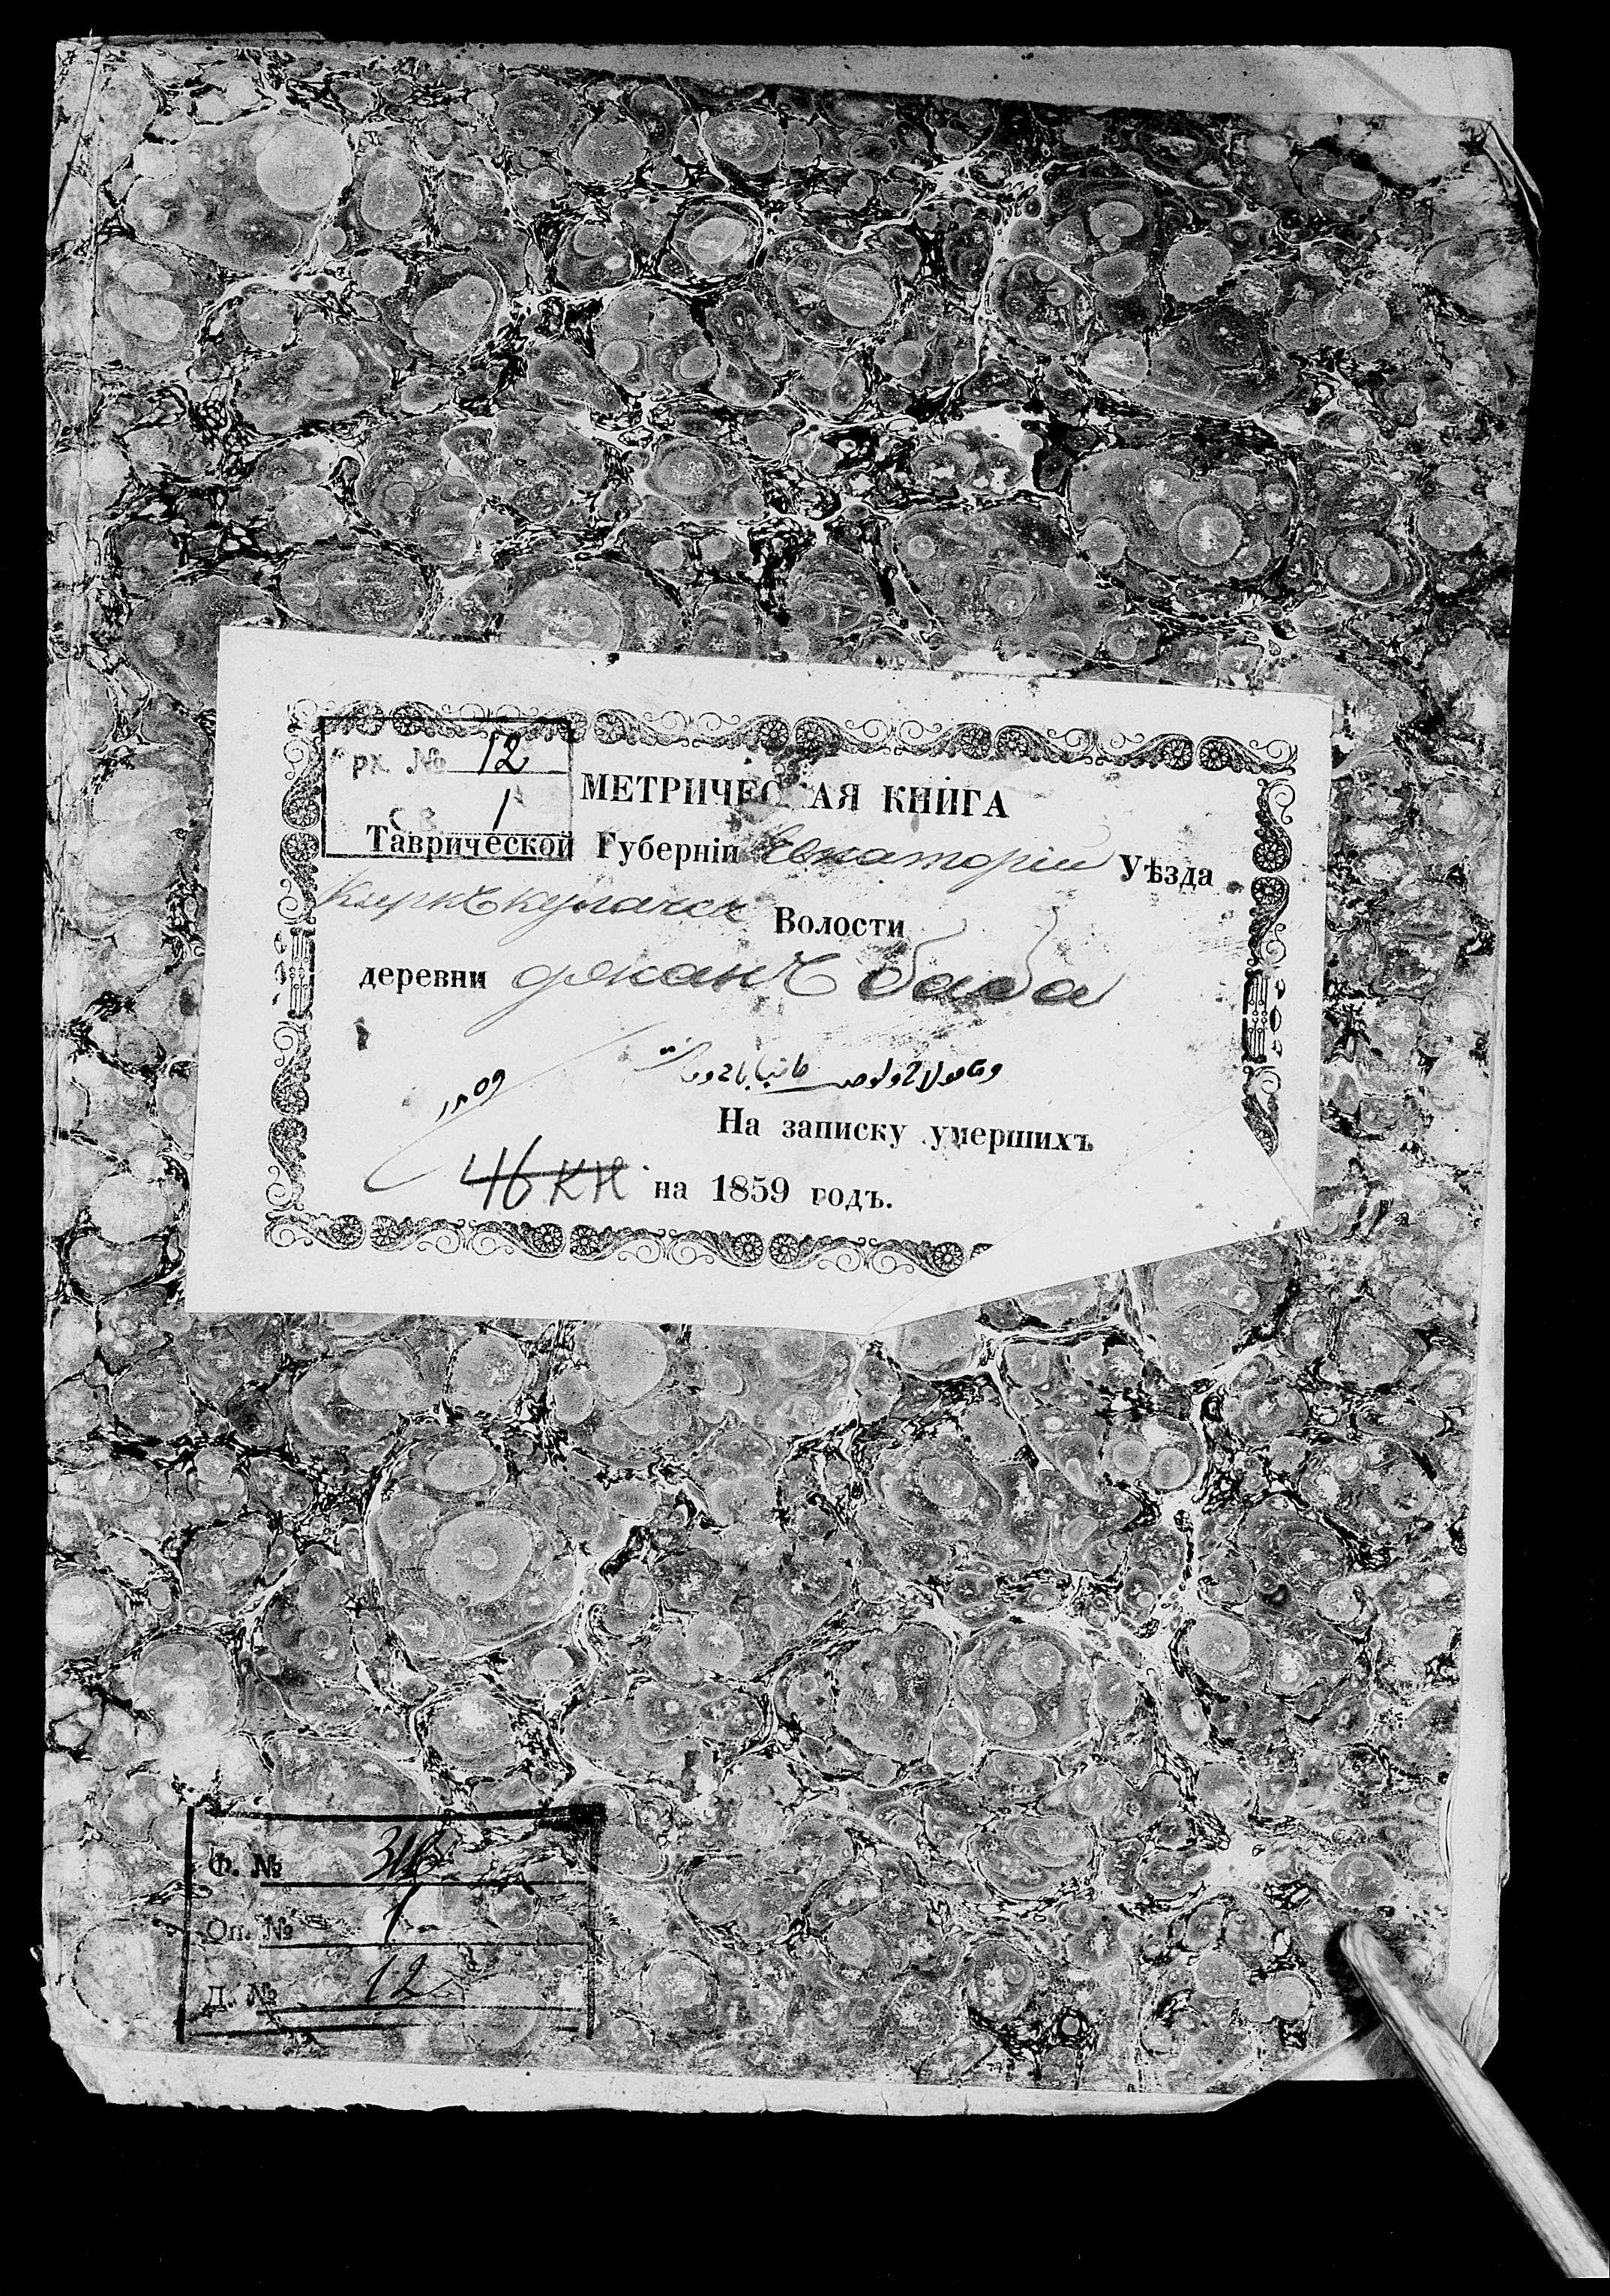 рх. № 12
1
МЕТРИЧЕСКАЯ КНИГА
Таврической Губерніи Евпаторіи Уѣзда
Волости
деревни джанъ баба
١٨٥٩
На записку умершихъ
46 КН на 1859 годъ.
Ф. №
Оп. № 1
Д. № 12